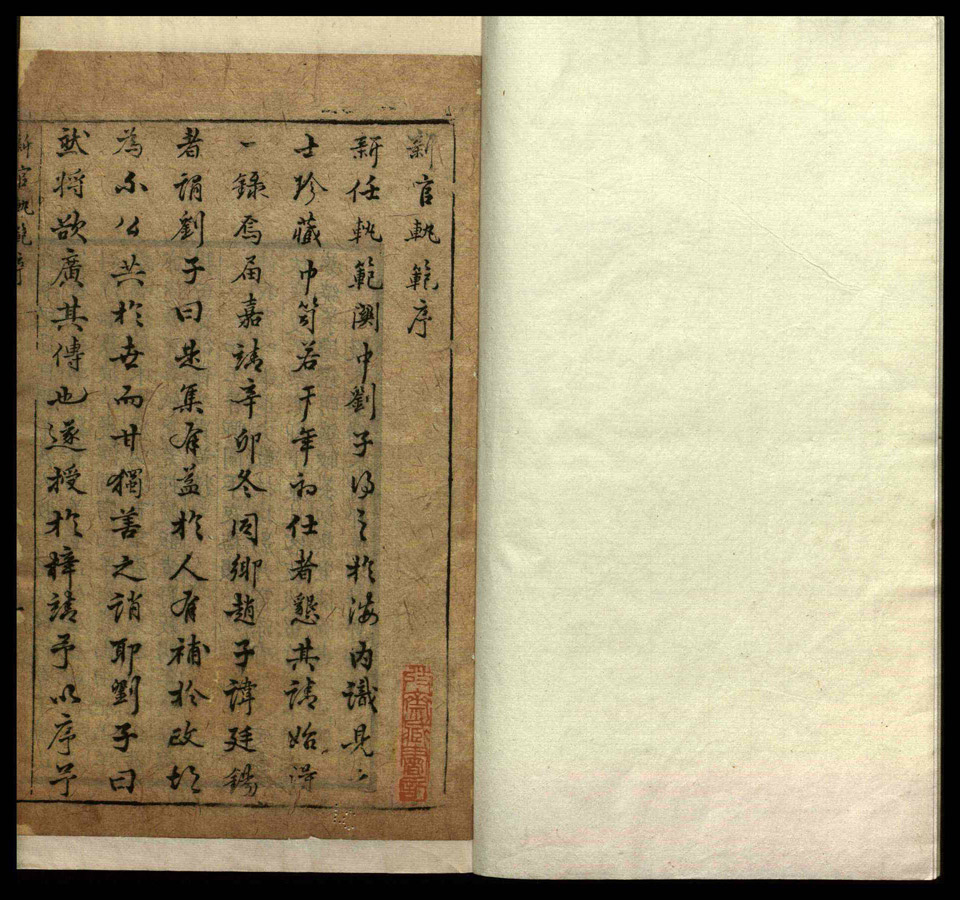 新官軌範序
新任軌範関中劉子得之於海内識見之
士珍藏巾笥若干年初仕者懇其請始得
一錄焉届嘉靖辛卯冬同鄉趙子諱廷錫
者謂劉子曰是集有益於人有補於政胡
為不公共於世而甘獨善之誚耶劉子曰
然将欲廣其傳也遂授於梓請予以序予
新官軌範序
一